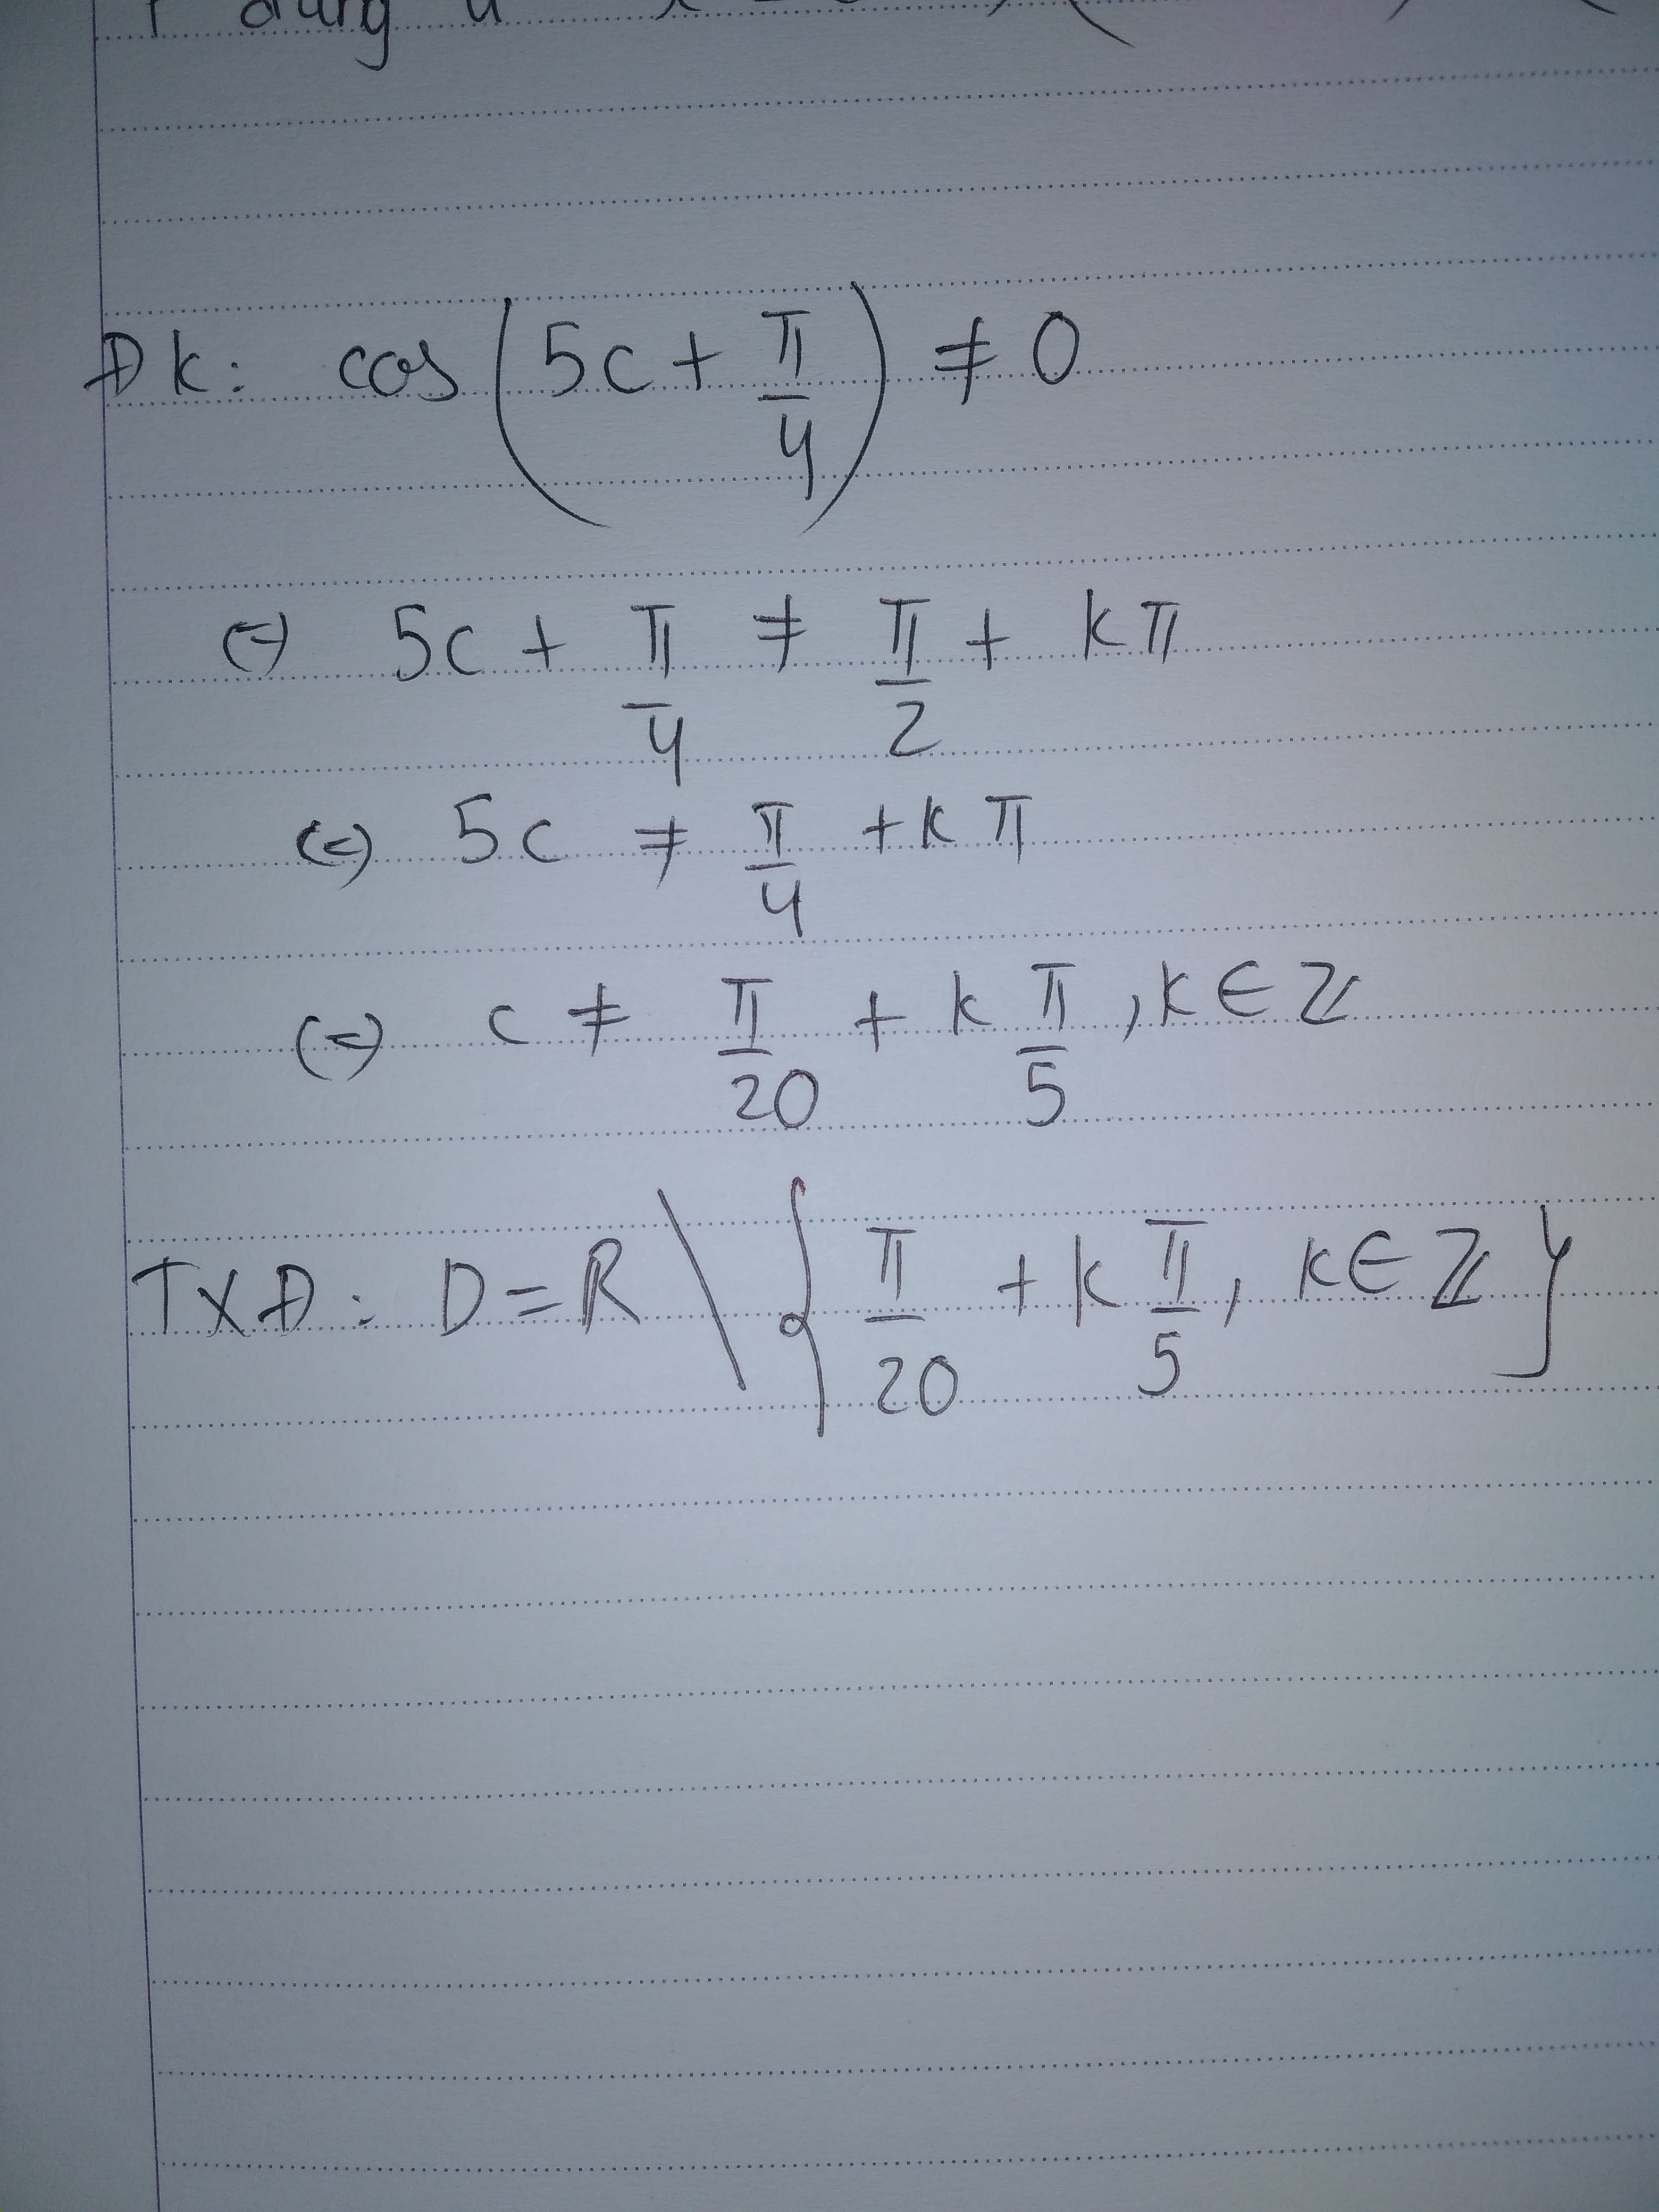 dùng
ĐK: cos(5c + π/4) ≠ 0
(=) 5c + π/4 ≠ π/2 + kπ
(=) 5c ≠ π/4 + kπ
(=) c ≠ π/20 + k π/5, k ∈ ℤ
TXĐ: D = ℝ \ { π/20 + k π/5, k ∈ ℤ }